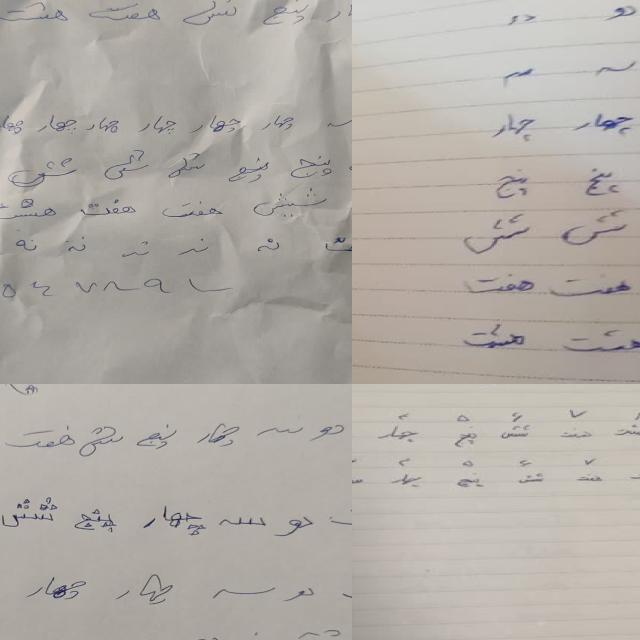 پنج شش هفت هشت
سه چهار چهار چهار چهار چهار چهار
پنج پنج شش شش شش
شیش هفت هفت هشت
نه نه نه نه نه
۵ ۶ ۷ ۸ ۹ ۱۰
دو دو
سه سه
چهار چهار
پنج پنج
شش شش
هفت هفت
هشت هشت
دو سه چهار پنج شش هفت
دو سه چهار پنج شش
دو سه چهار چهار
۸ ۷ ۶ ۵ ۴
هشت هفت شش پنج چهار
۷ ۶ ۵ ۴
هفت شش پنج چهار